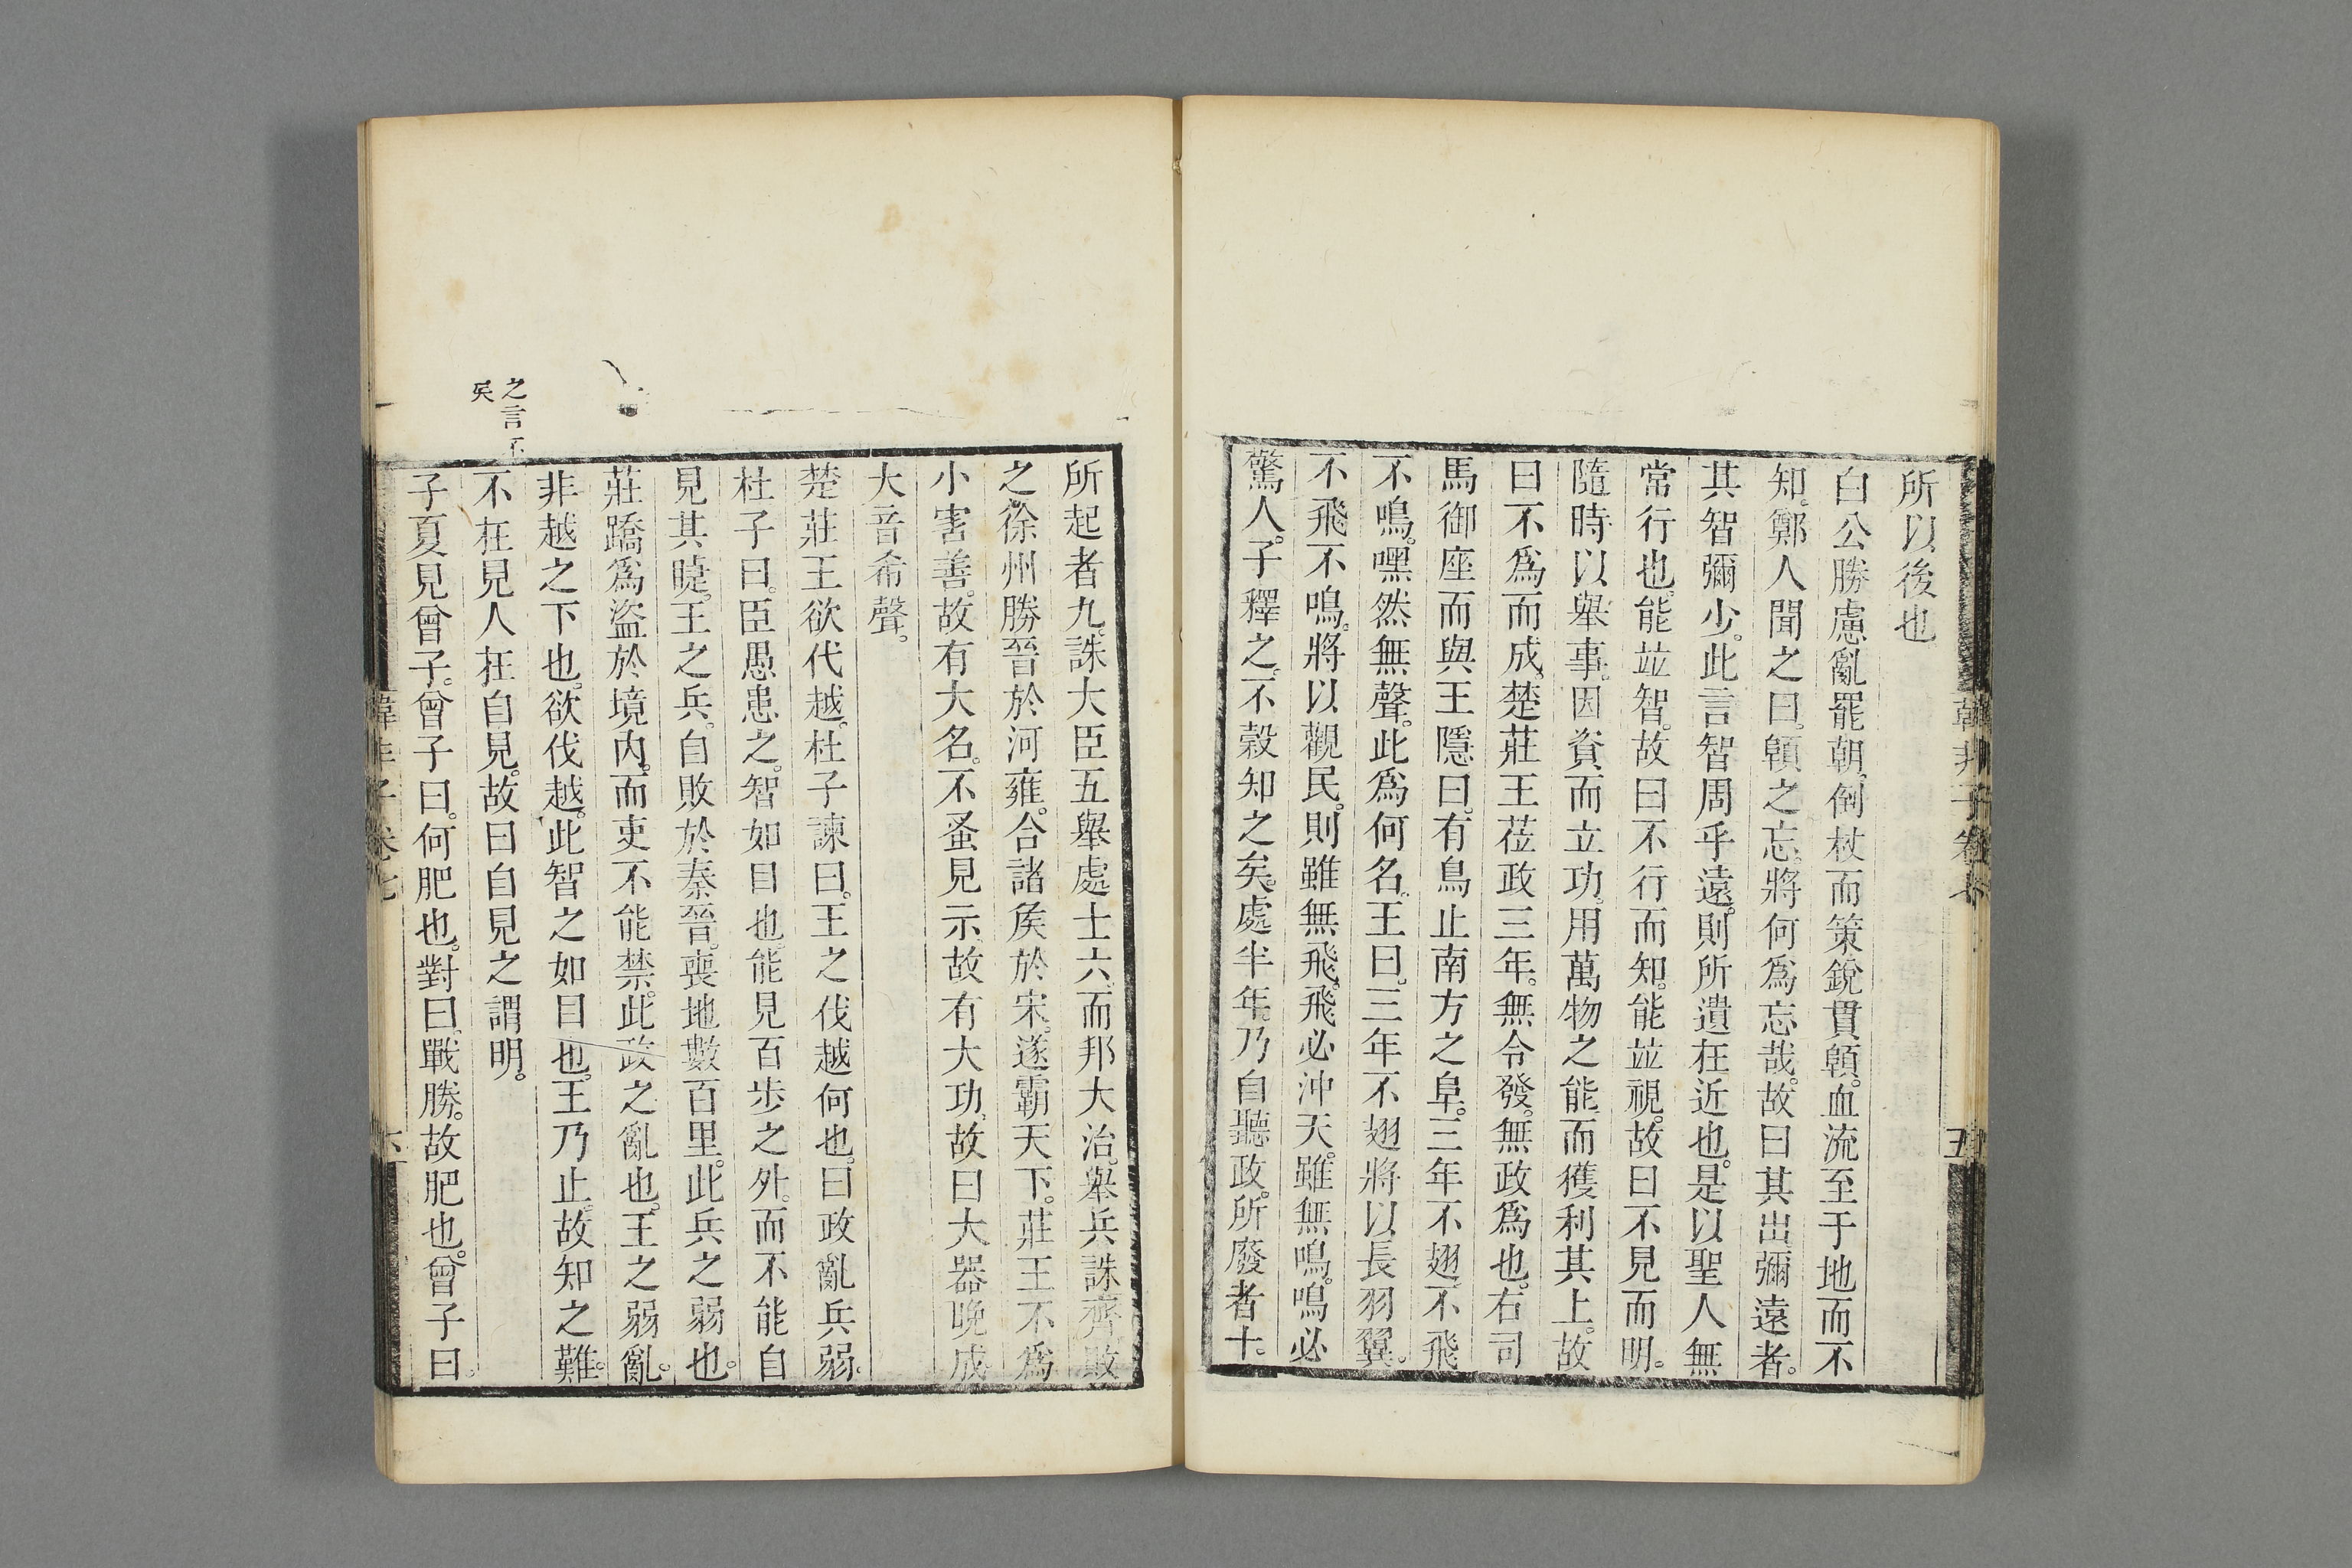 所以後也
白公勝慮亂罷朝倒杖而策銳貫顊血流至于地而不
知。鄭人聞之曰。顊之忘。將何爲忘哉。故曰其出彌遠者。
其智彌少。此言智周乎遠。則所遺在近也。是以聖人無
常行也。能竝智。故曰不行而知。能竝視。故曰不見而明。
隨時以舉事。因資而立功。用萬物之能而獲利其上。故
曰不爲而成。楚莊王莅政三年。無令發。無政爲也。右司
馬御座而與王隱曰。有鳥止南方之阜。三年不翅不飛
不鳴。嘿然無聲。此爲何名。王曰。三年不翅將以長羽翼。
不飛不鳴。將以觀民。則雖無飛。飛必沖天。雖無鳴。鳴必
驚人。子釋之。不穀知之矣。處半年。乃自聽政。所廢者十。
韓非子卷七
五
所起者九。誅大臣五舉處士六。而邦大治。舉兵誅齊敗
之徐州勝晉於河雍。合諸矦於宋。遂霸天下。莊王不爲
小害善。故有大名。不蚤見示。故有大功。故曰大器晚成
大音希聲。
楚莊王欲伐越。杜子諫曰。王之伐越何也。曰政亂兵弱。
杜子曰。臣愚患之。智如目也。能見百步之外。而不能自
見其睫。王之兵。自敗於秦晉。喪地數百里。此兵之弱也。
莊蹻爲盜於境內。而吏不能禁。此政之亂也。王之弱亂。
非越之下也。欲伐越。此智之如目也。王乃止。故知之難。
不在見人在自見。故曰自見之謂明。
子夏見曾子。曾子曰。何肥也。對曰。戰勝。故肥也。曾子曰。
之言不
矣
韓非子卷七